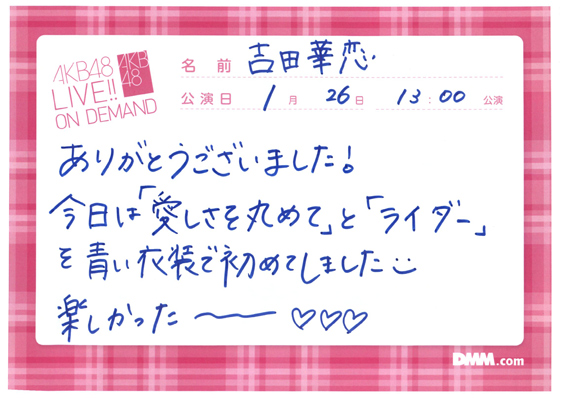 AKB48
LIVE!!
ON DEMAND
AKB
48
名前 吉田華恋
公演日 1月 26日 13:00 公演
ありがとうございました!
今日は「愛しさを丸めて」と「ライダー」
を青い衣装で初めてしました
楽しかった〜 ♡♡♡
DMM.com